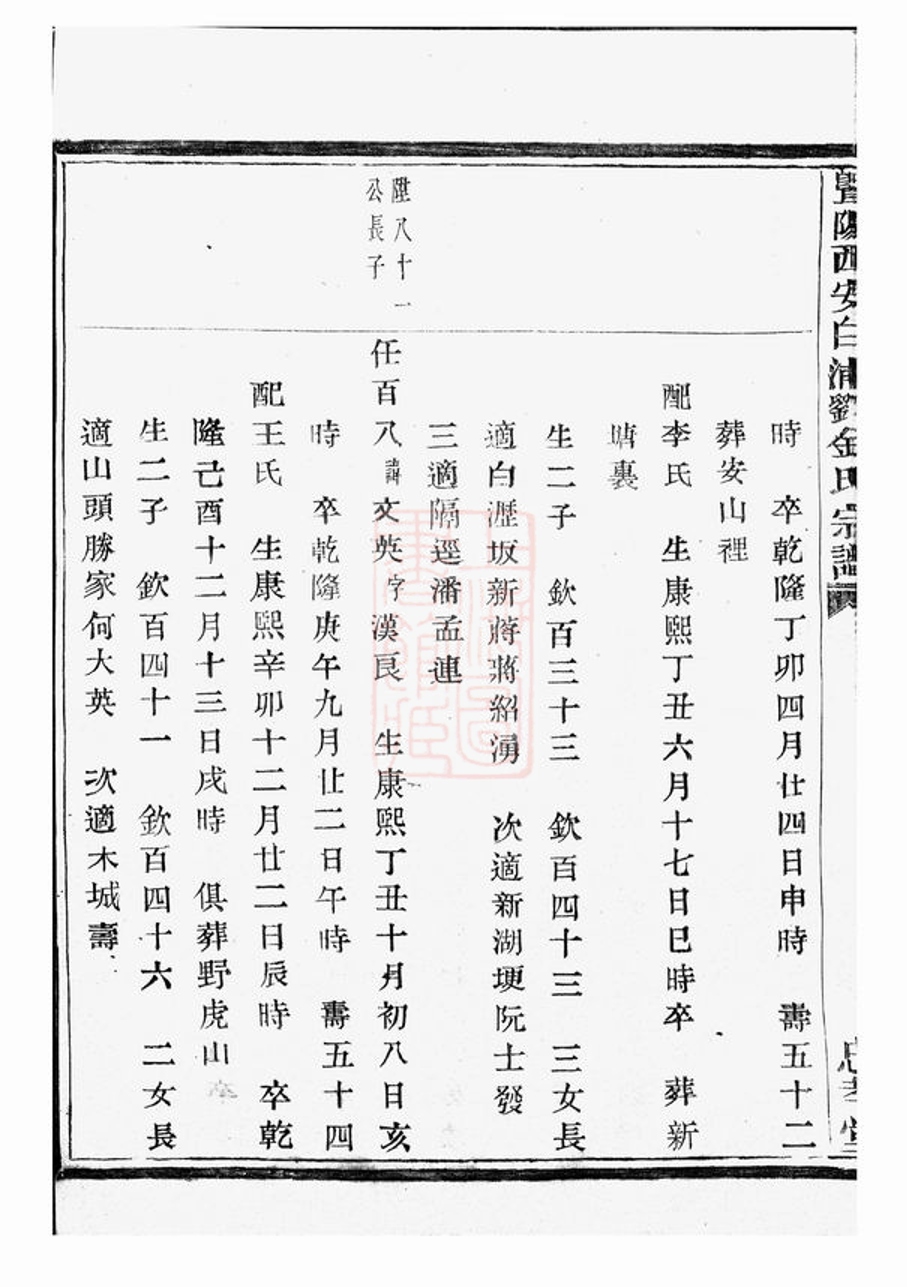 暨陽西安白浦劉金氏宗譜
時 卒乾隆丁卯四月廿四日申時 壽五十二
葬安山裡
配李氏 生康熙丁丑六月十七日巳時卒 葬新
塘裏
生二子 欽百三十三 欽百四十三 三女長
適白瀝坂新蔣蔣紹湧 次適新湖埂阮士發
三適隔逕潘孟連
陞八十一
公長子
任百八諱文英字漢良 生康熙丁丑十月初八日亥
時 卒乾隆庚午九月廿二日午時 壽五十四
配王氏 生康熙辛卯十二月廿二日辰時 卒乾
隆己酉十二月十三日戌時 俱葬野虎山
生二子 欽百四十一 欽百四十六 二女長
適山頭勝家何大英 次適木城壽